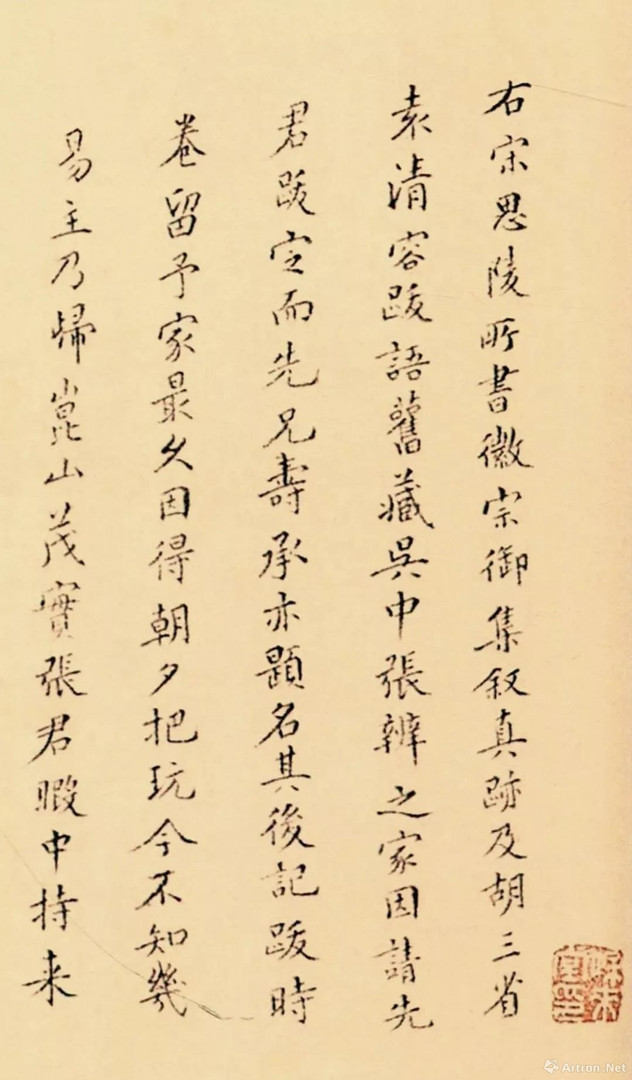 右宋思陵所書徽宗御集叙真跡及胡三省
袁清容跋語舊藏吳中張辨之家因請先
君跋定而先兄壽承亦題名其後記跋時
卷留予家最久因得朝夕把玩今不知幾
易主乃歸崑山茂實張君暇中持来
Artron.Net